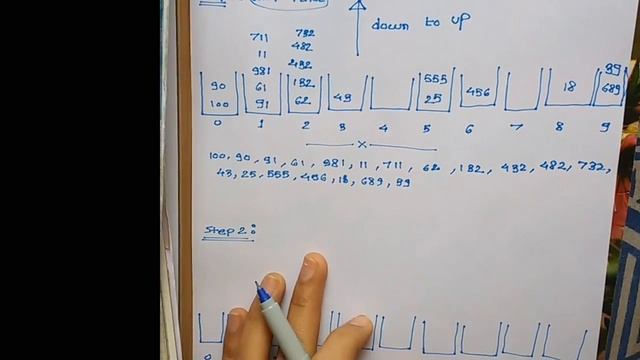 down to up
711 732
11 482
981 432 99
90 61 132 555 18 689
100 91 62 43 25 456
0 1 2 3 4 5 6 7 8 9
x
100, 90, 91, 61, 981, 11, 711, 62, 132, 432, 482, 732,
43, 25, 555, 456, 18, 689, 99
Step 2:
0